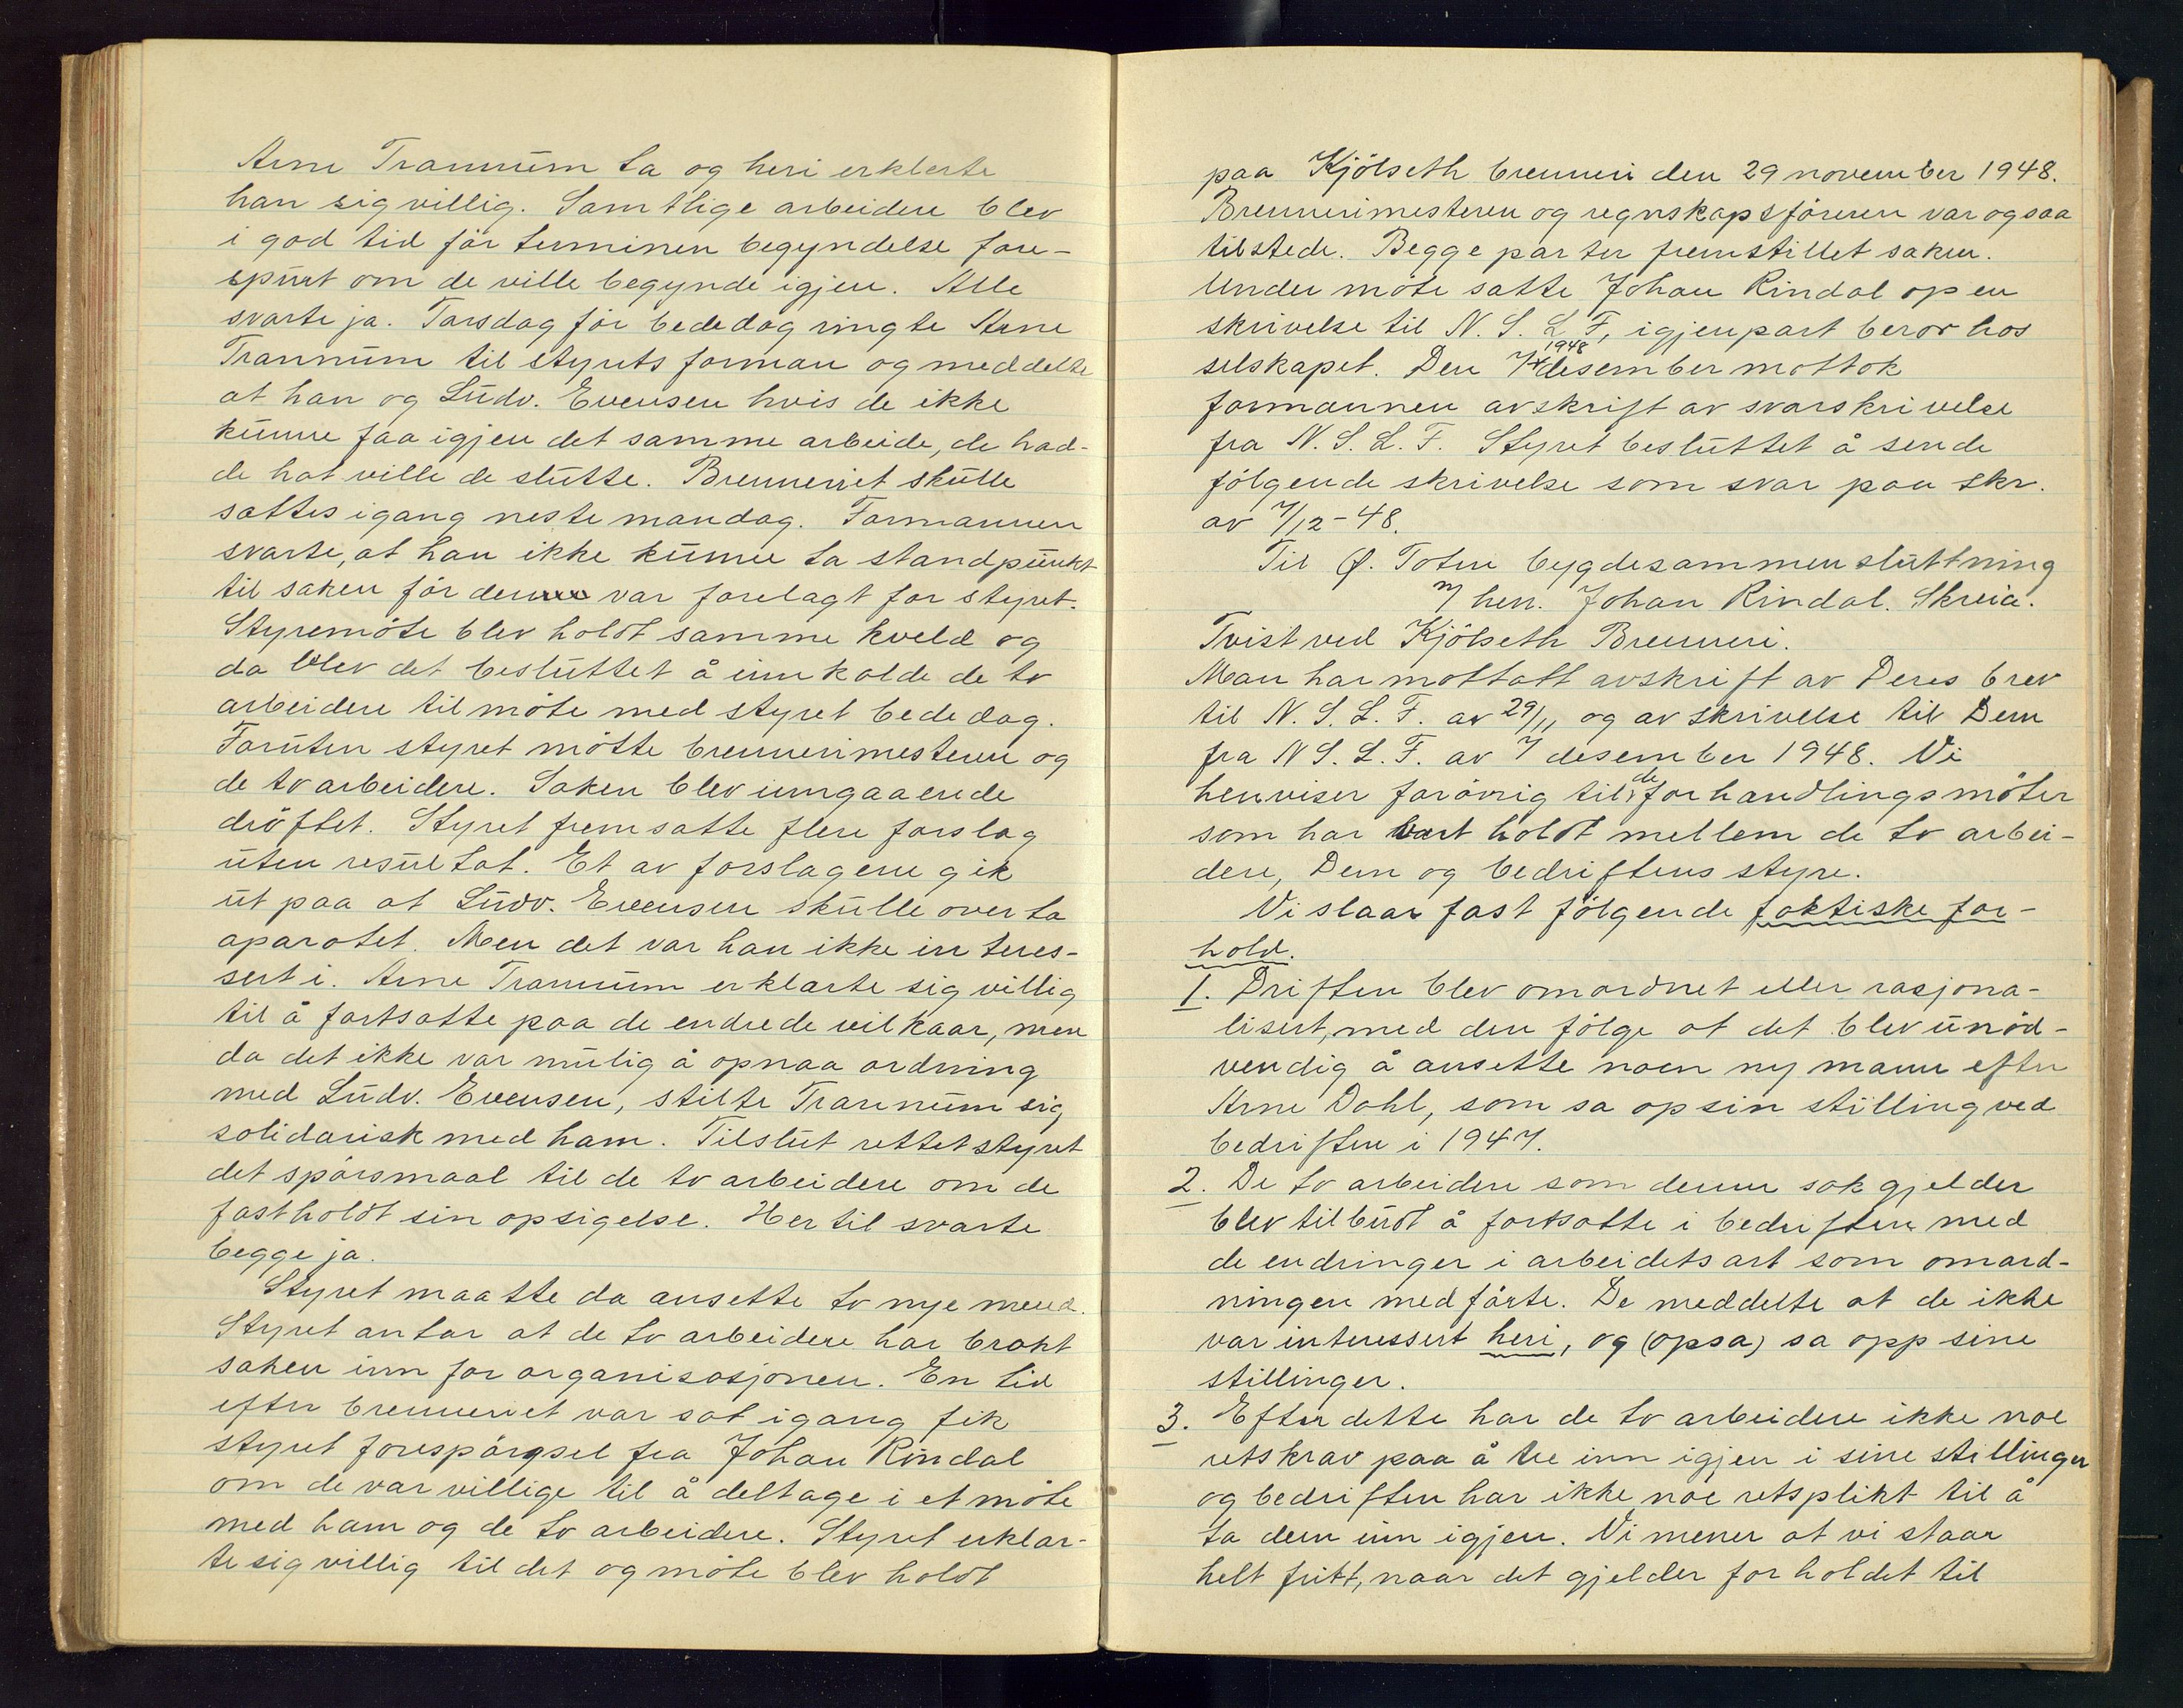 Arne Trannum ta og heri erklerte
han sig villig. Samtlige arbeidere blev
i god tid før terminen begyndelse fore-
spurt om de ville begynde igjen. Alle
svarte ja. Torsdag før bededag ringte Arne
Trannum til styrets forman og meddelte
at han og Ludv. Evensen hvis de ikke
kunne faa igjen det samme arbeide, de had-
de hat ville de slutte. Brenneriet skulle
settes igang neste mandag. Formannen
svarte, at han ikke kunne ta standpunkt
til saken før den var forelagt for styret.
Styremöte blev holdt samme kveld og
da blev det besluttet å innkalde de to
arbeidere til möte med styret bededag.
Foruten styret mötte brennerimesteren og
de to arbeidere. Saken blev inngaaende
dröftet. Styret fremsatte flere forslag
uten resultat. Et av forslagene gik
ut paa at Ludv. Evensen skulle overta
aparatet. Men det var han ikke interes-
sert i. Arne Trannum erklarte sig villig
til å fortsatte paa de endrede vilkaar, men
da det ikke var mulig å opnaa ordning
med Ludv. Evensen, stilte Trannum sig
solidarisk med ham. Tilslut rettet styret
det spörsmaal til de to arbeidere om de
fastholdt sin opsigelse. Hertil svarte
begge ja.
Styret maatte da ansette to nye mend.
Styret antar at de to arbeidere har brakt
saken inn for organisasjonen. En tid
efter brenneriet var sat igang fik
styret forespörgsel fra Johan Rindal
om de var villige til å deltage i et möte
med ham og de to arbeidere. Styret erklar-
te sig villig til det og möte blev holdt
paa Kjölseth brenneri den 29 november 1948.
Brennerimesteren og regnskapsföreren var ogsaa
tilstede. Begge parter fremstillet saken.
Under möte satte Johan Rindal op en
skrivelse til N. S. L. F, igjenpart beror hos
selskapet. Den 7/ desember 1948 mottok
formannen avskrift av svarskrivelse
fra N. S. L. F. Styret besluttet å sende
fölgende skrivelse som svar paa skr.
av 7/12-48.
Til Ø. Toten bygdesammensluttning
v/ herr. Johan Rindal. Skreia.
Tvist ved Kjölseth Brenneri.
Man har mottatt avskrift av Deres brev
til N. S. L. F. av 29/11 og av skrivelse til Dem
fra N S. L. F. av 7 desember 1948. Vi
henviser forövrig til de forhandlingsmöter
som har vært holdt mellem de to arbei-
dere, Dem og bedriftens styre.
Vi slaar fast fölgende faktiske for-
hold.
1. Driften blev omordnet eller rasjona-
lisert, med den fölge at det blev unöd-
vendig å ansette noen ny mann efter
Arne Dahl, som sa op sin stilling ved
bedriften i 1947.
2. De to arbeidere som denne sak gjelder
blev tilbudt å fortsatte i bedriften med
de endringer i arbeidets art som omord-
ningen medförte. De meddelte at de ikke
var interessert heri, og (opsa) sa opp sine
stillinger.
3. Efter dette har de to arbeidere ikke noe
retskrav paa å tre inn igjen i sine stillinger
og bedriften har ikke noe retsplikt til å
ta dem inn igjen. Vi mener at vi staar
helt fritt, naar det gjelder forholdet til